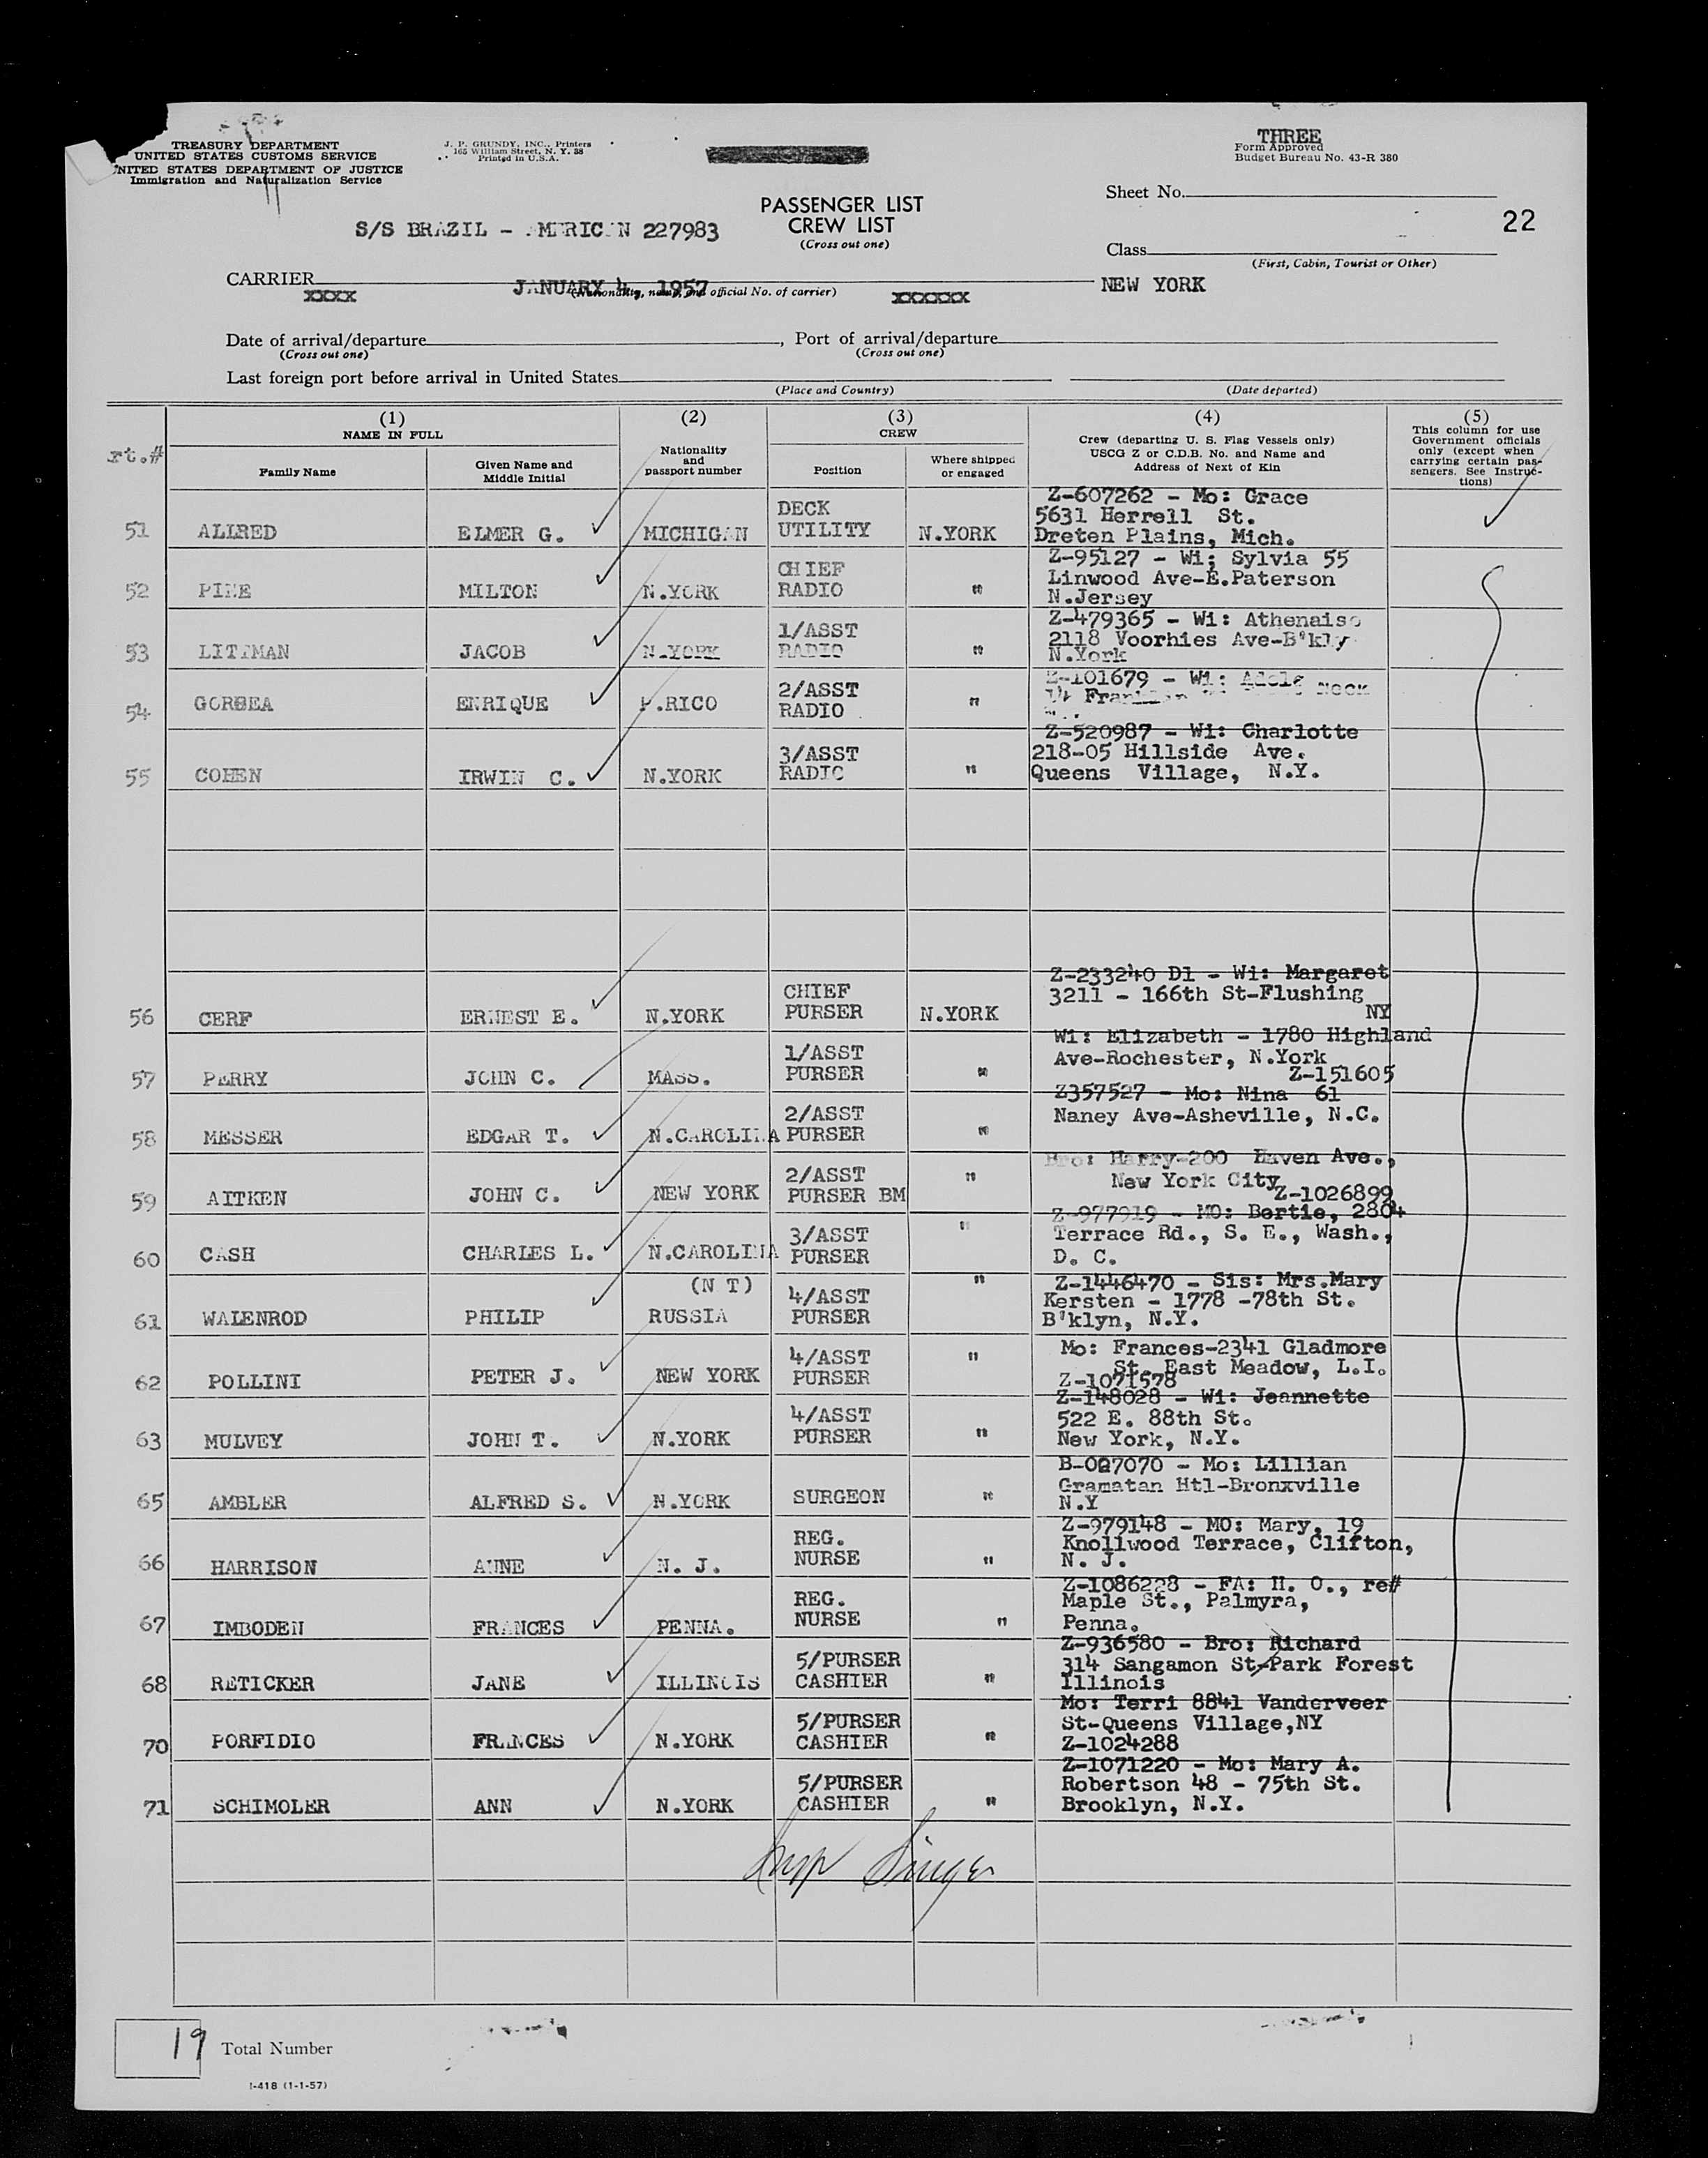 THREE
TREASURY DEPARTMENT
UNITED STATES CUSTOMS SERVICE
UNITED STATES DEPARTMENT OF JUSTICE
Immigration and Naturalization Service
J. P. GRUNDY, INC., Printers
165 William Street, N. Y. 38
Printed in U.S.A.
Form Approved
Budget Bureau No. 43-R 380
PASSENGER LIST
CREW LIST
(Cross out one)
Sheet No.
22
S/S BRAZIL - AMERICAN 227983
Class
(First, Cabin, Tourist or Other)
CARRIER
XXXX
JANUARY 4, 1957
(Nationality, name, and official No. of carrier)
XXXXXX
NEW YORK
Date of arrival/departure , Port of arrival/departure
(Cross out one) (Cross out one)
Last foreign port before arrival in United States
(Place and Country) (Date departed)
rt.#
(1) (2) (3) (4) (5)
NAME IN FULL
Family Name
Given Name and Middle Initial
Nationality and passport number
CREW
Position
Where shipped or engaged
Crew (departing U. S. Flag Vessels only)
USCG Z or C.D.B. No. and Name and
Address of Next of Kin
This column for use
Government officials
only (except when
carrying certain pas-
sengers. See Instruc-
tions)
51 ALLRED ELMER G. MICHIGAN DECK UTILITY N.YORK Z-607262 - Mo: Grace
5631 Herrell St.
Dreten Plains, Mich.
52 PINE MILTON N.YORK CHIEF RADIO " Z-95127 - Wi; Sylvia 55
Linwood Ave-E.Paterson
N.Jersey
53 LITTMAN JACOB N.YORK 1/ASST RADIO " Z-479365 - Wi: Athenaise
2118 Voorhies Ave-B'kly
N.York
54 GORBEA ENRIQUE P.RICO 2/ASST RADIO " Z-101679 - Wi: Adele
14 Neck
55 COHEN IRWIN C. N.YORK 3/ASST RADIO " Z-520987 - Wi: Charlotte
218-05 Hillside Ave.
Queens Village, N.Y.
56 CERF ERNEST E. N.YORK CHIEF PURSER N.YORK Z-233240 D1 - Wi: Margaret
3211 - 166th St-Flushing
NY
57 PERRY JOHN C. MASS. 1/ASST PURSER " Wi: Elizabeth - 1780 Highland
Ave-Rochester, N.York
Z-151605
58 MESSER EDGAR T. N.CAROLINA 2/ASST PURSER " Z357527 - Mo: Nina 61
Naney Ave-Asheville, N.C.
59 AITKEN JOHN C. NEW YORK 2/ASST PURSER BM " Bro: Harry-200 Haven Ave.,
New York City
Z-1026899
60 CASH CHARLES L. N.CAROLINA 3/ASST PURSER " Z-977919 - MO: Bertie, 2804
Terrace Rd., S. E., Wash.,
D. C.
61 WALENROD PHILIP (N T) RUSSIA 4/ASST PURSER " Z-1446470 - Sis: Mrs.Mary
Kersten - 1778 -78th St.
B'klyn, N.Y.
62 POLLINI PETER J. NEW YORK 4/ASST PURSER " Mo: Frances-2341 Gladmore
St. East Meadow, L.I.
Z-1071578
63 MULVEY JOHN T. N.YORK 4/ASST PURSER " Z-148028 - Wi: Jeannette
522 E. 88th St.
New York, N.Y.
65 AMBLER ALFRED S. N.YORK SURGEON " B-027070 - Mo: Lillian
Gramatan Htl-Bronxville
N.Y
66 HARRISON ANNE N. J. REG. NURSE " Z-979148 - MO: Mary, 19
Knollwood Terrace, Clifton,
N. J.
67 IMBODEN FRANCES PENNA. REG. NURSE " Z-1086228 - FA: H. O., re#
Maple St., Palmyra,
Penna.
68 RETICKER JANE ILLINOIS 5/PURSER CASHIER " Z-936580 - Bro: Richard
314 Sangamon St-Park Forest
Illinois
70 PORFIDIO FRANCES N.YORK 5/PURSER CASHIER " Mo: Terri 8841 Vanderveer
St-Queens Village,NY
Z-1024288
71 SCHIMOLER ANN N.YORK 5/PURSER CASHIER " Z-1071220 - Mo: Mary A.
Robertson 48 - 75th St.
Brooklyn, N.Y.
Singer
19 Total Number
I-418 (1-1-57)